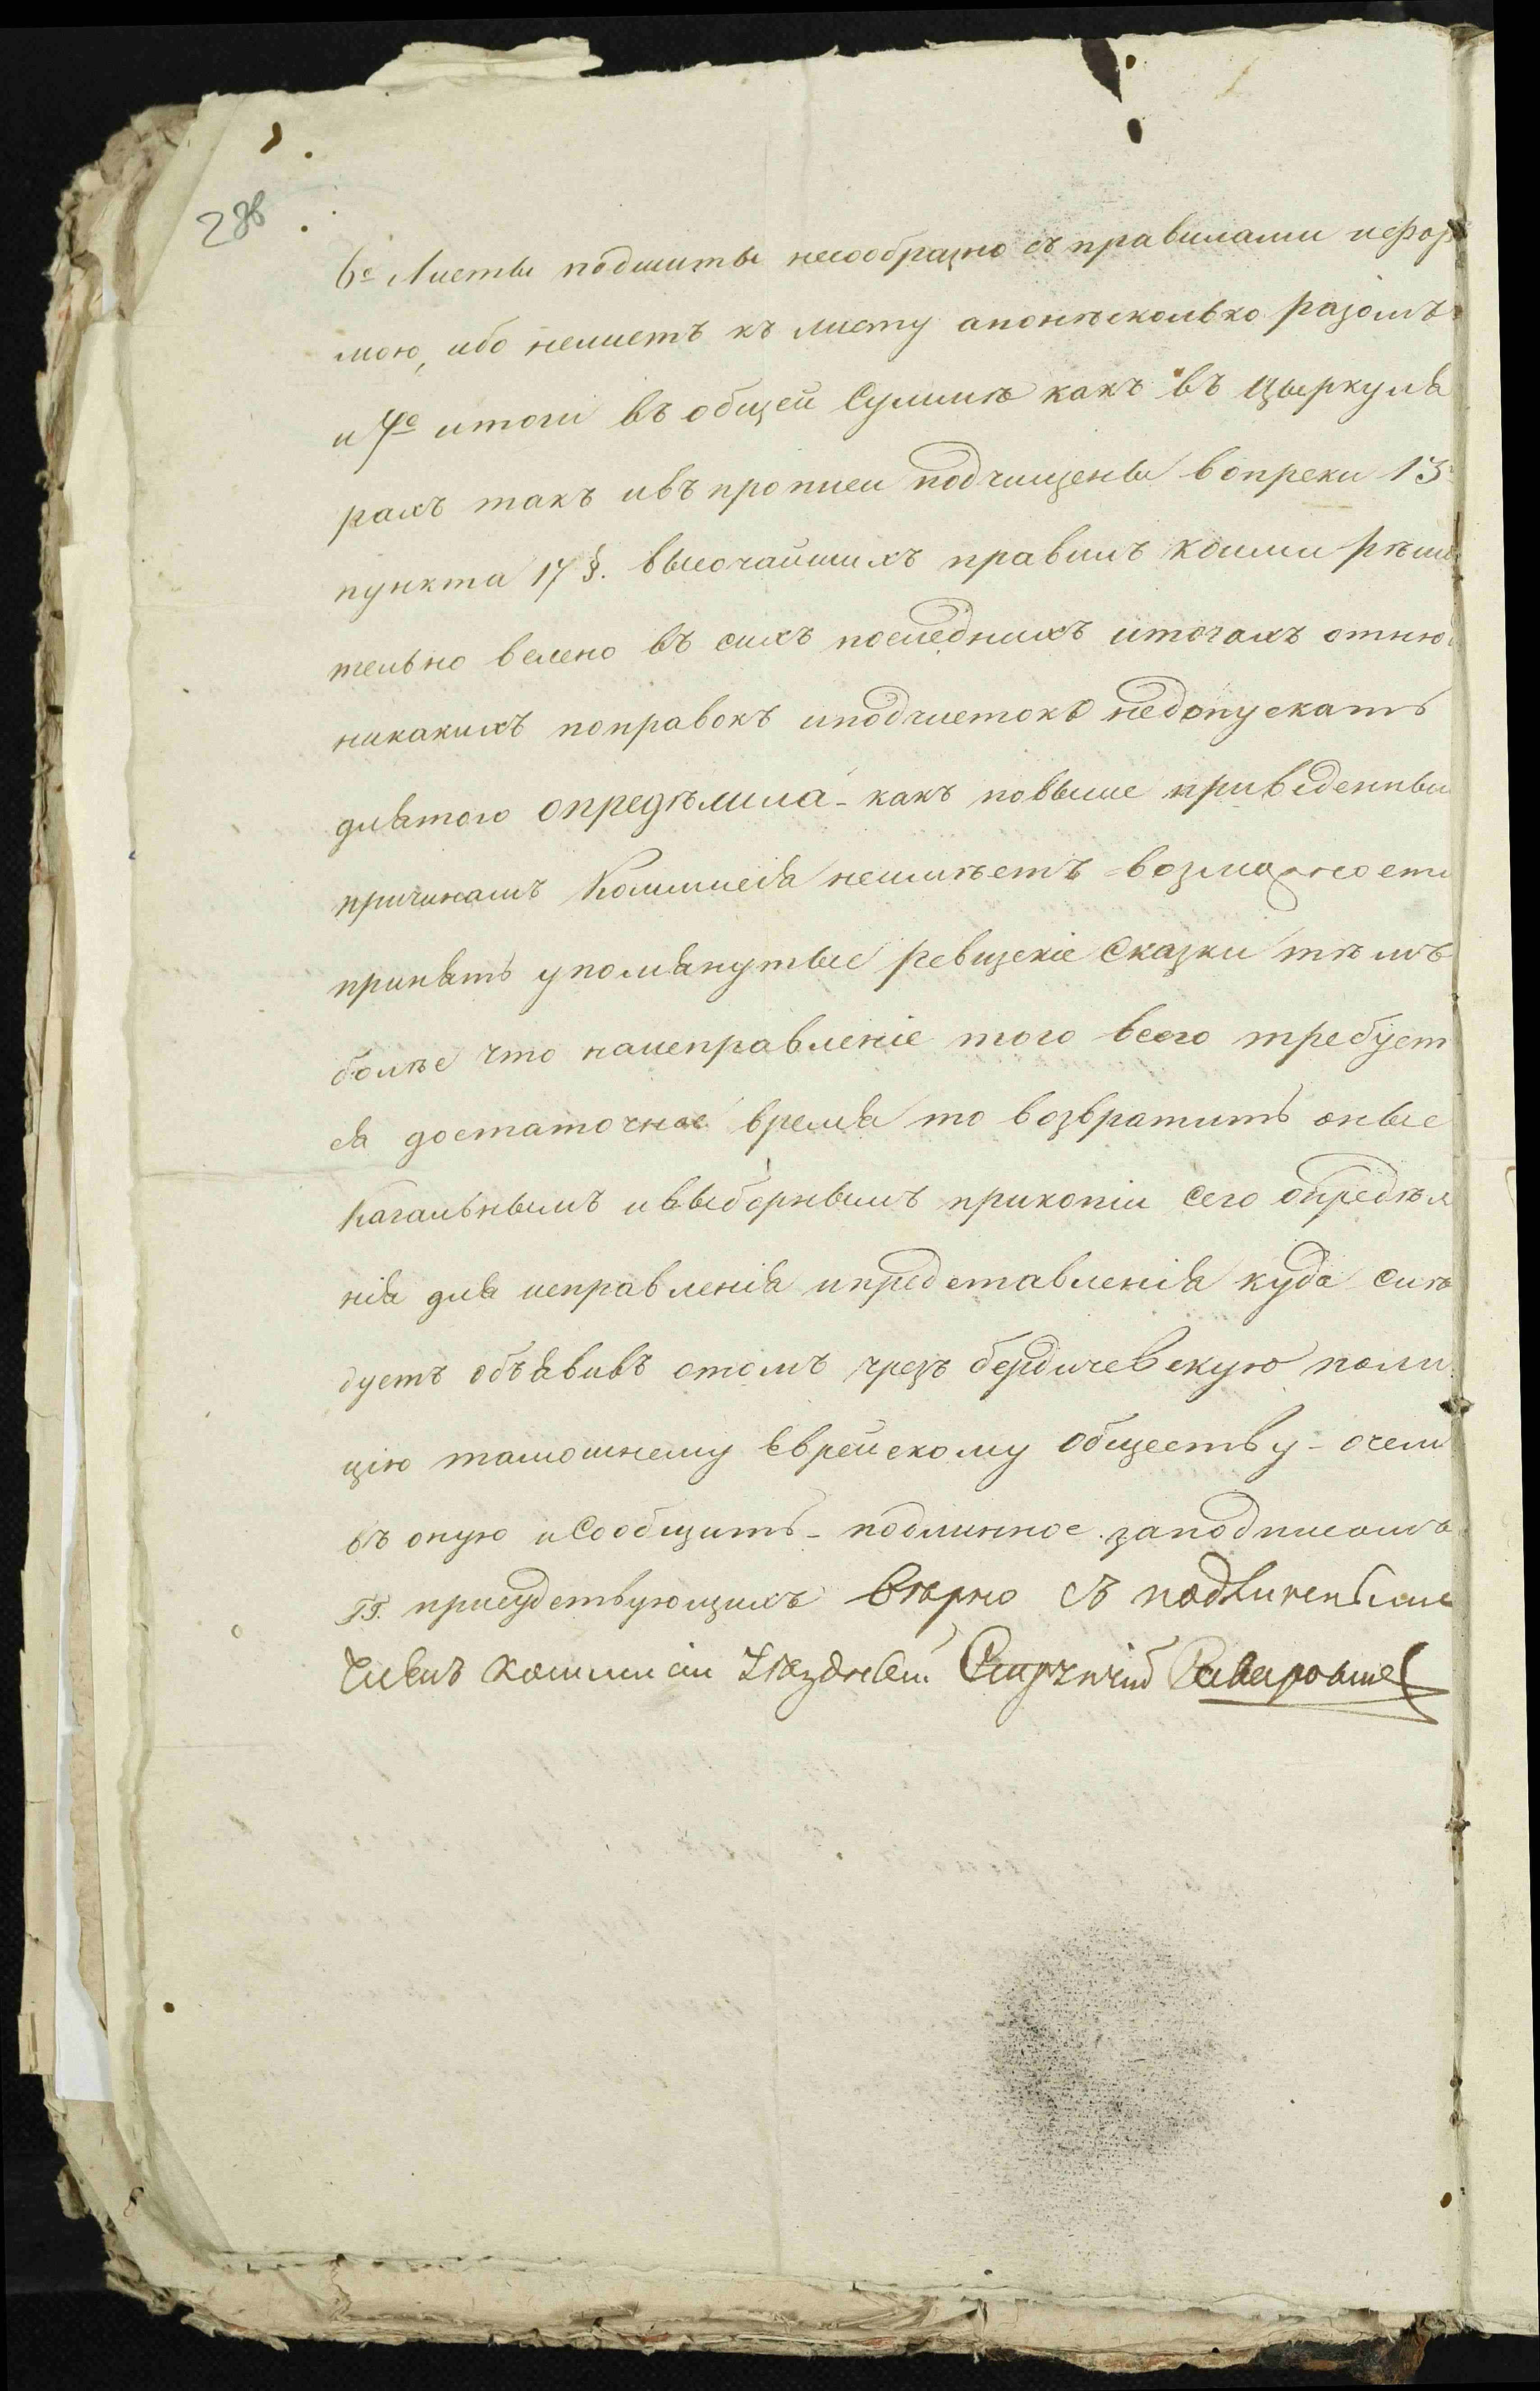 28б
6е Листы подшиты несообразно съ правилами ифор
мою, ибо нелистъ къ листу апонѣсколько разомъ
и 7е итоги въ общей Суммѣ какъ въ цыркуля
рахъ такъ ивъ прописи подчищены вопреки 13
пункта 17 §. высочайшихъ правилъ коими рѣши
тельно велено въ сихъ последнихъ итогахъ отнюд
никакихъ поправокъ иподчистокъ недопускать
длятого опредѣлила - какъ повыше приведенны
причинамъ Коммисія неимѣетъ возможности
принять упомянутые ревизскіе Сказки тѣмъ
болѣе что наисправленіе того всего требует
ся достаточное время то возвратить оные
Кагальнымъ ивыборнымъ прикопіи сего опредѣле
нія для исправленія ипредставленія куда слѣ
дуетъ объявивъ отомъ чрезъ бердичевскую поли
цію тамошнему Еврейскому обществу - очем
въ оную иСообщить - подлинное заподписомъ
ГГ. присудствующихъ Вѣрно съ подлинным
Членъ коммисіи Уѣздный Стряпчій